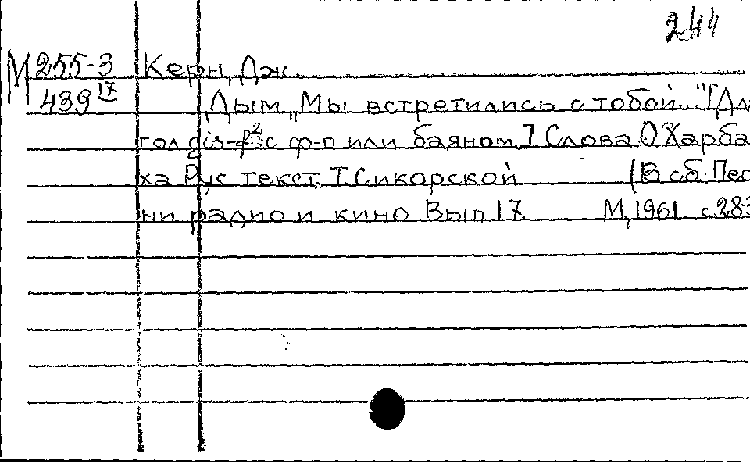 244
М 255-3 Керн, Дж.
439 17 Дым „Мы встретились с тобой.." [Дл
гол gis-f² с ф-п или баяном.] Слова О Харба
ха Рус текст Т. Сикорской (В сб. Пес
ни радио и кино Вып 17 М, 1961 с. 283